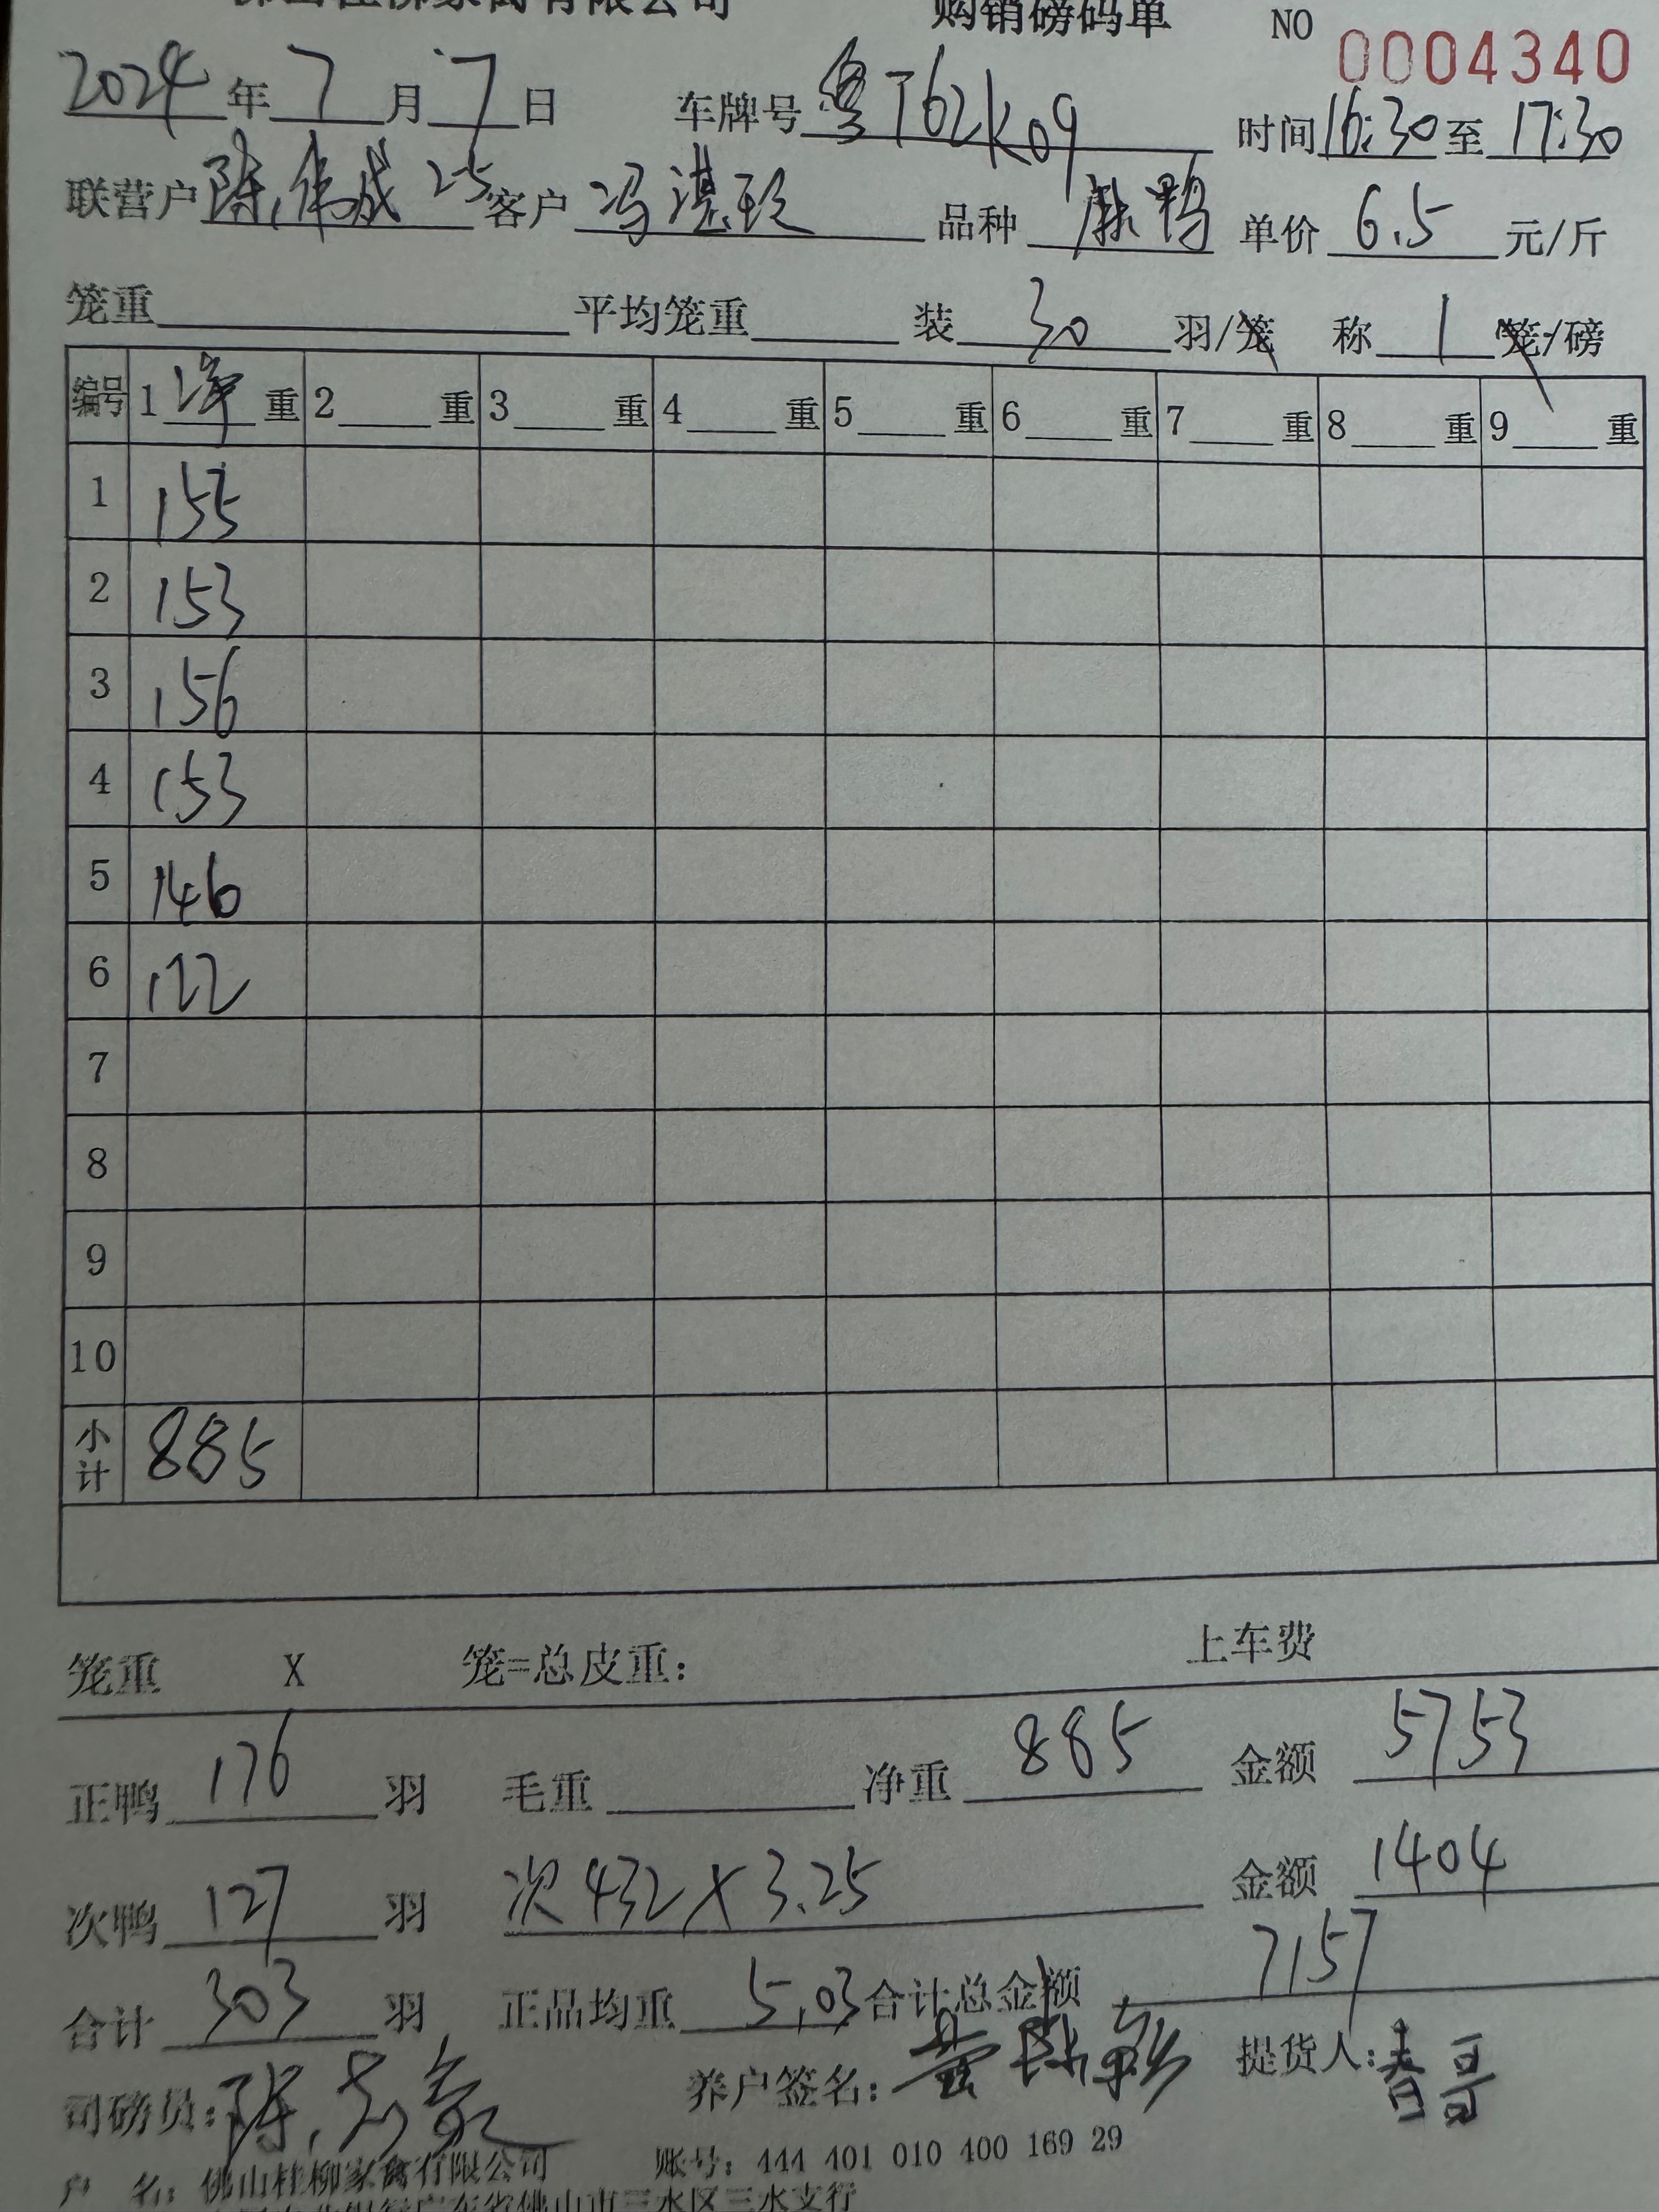 佛山桂柳家禽有限公司 购销磅码单 NO 0004340
2024年7月7日 车牌号粤T62K09 时间16:30至17:30
联营户陈伟成25 客户冯湛 品种麻鸭 单价6.5元/斤
笼重 平均笼重 装30羽/笼 称1笼/磅
编号 1净重 2重 3重 4重 5重 6重 7重 8重 9重
1 155
2 153
3 156
4 153
5 146
6 122
7
8
9
10
小计 885
笼重 X 笼=总皮重: 上车费
正鸭176羽 毛重 净重885 金额5753
次鸭127羽 次432X3.25 金额1404
合计303羽 正品均重5.03 合计总金额7157
司磅员:陈 养户签名: 提货人:春哥
户 名: 佛山桂柳家禽有限公司 账号: 444 401 010 400 169 29
佛山市三水区三水支行